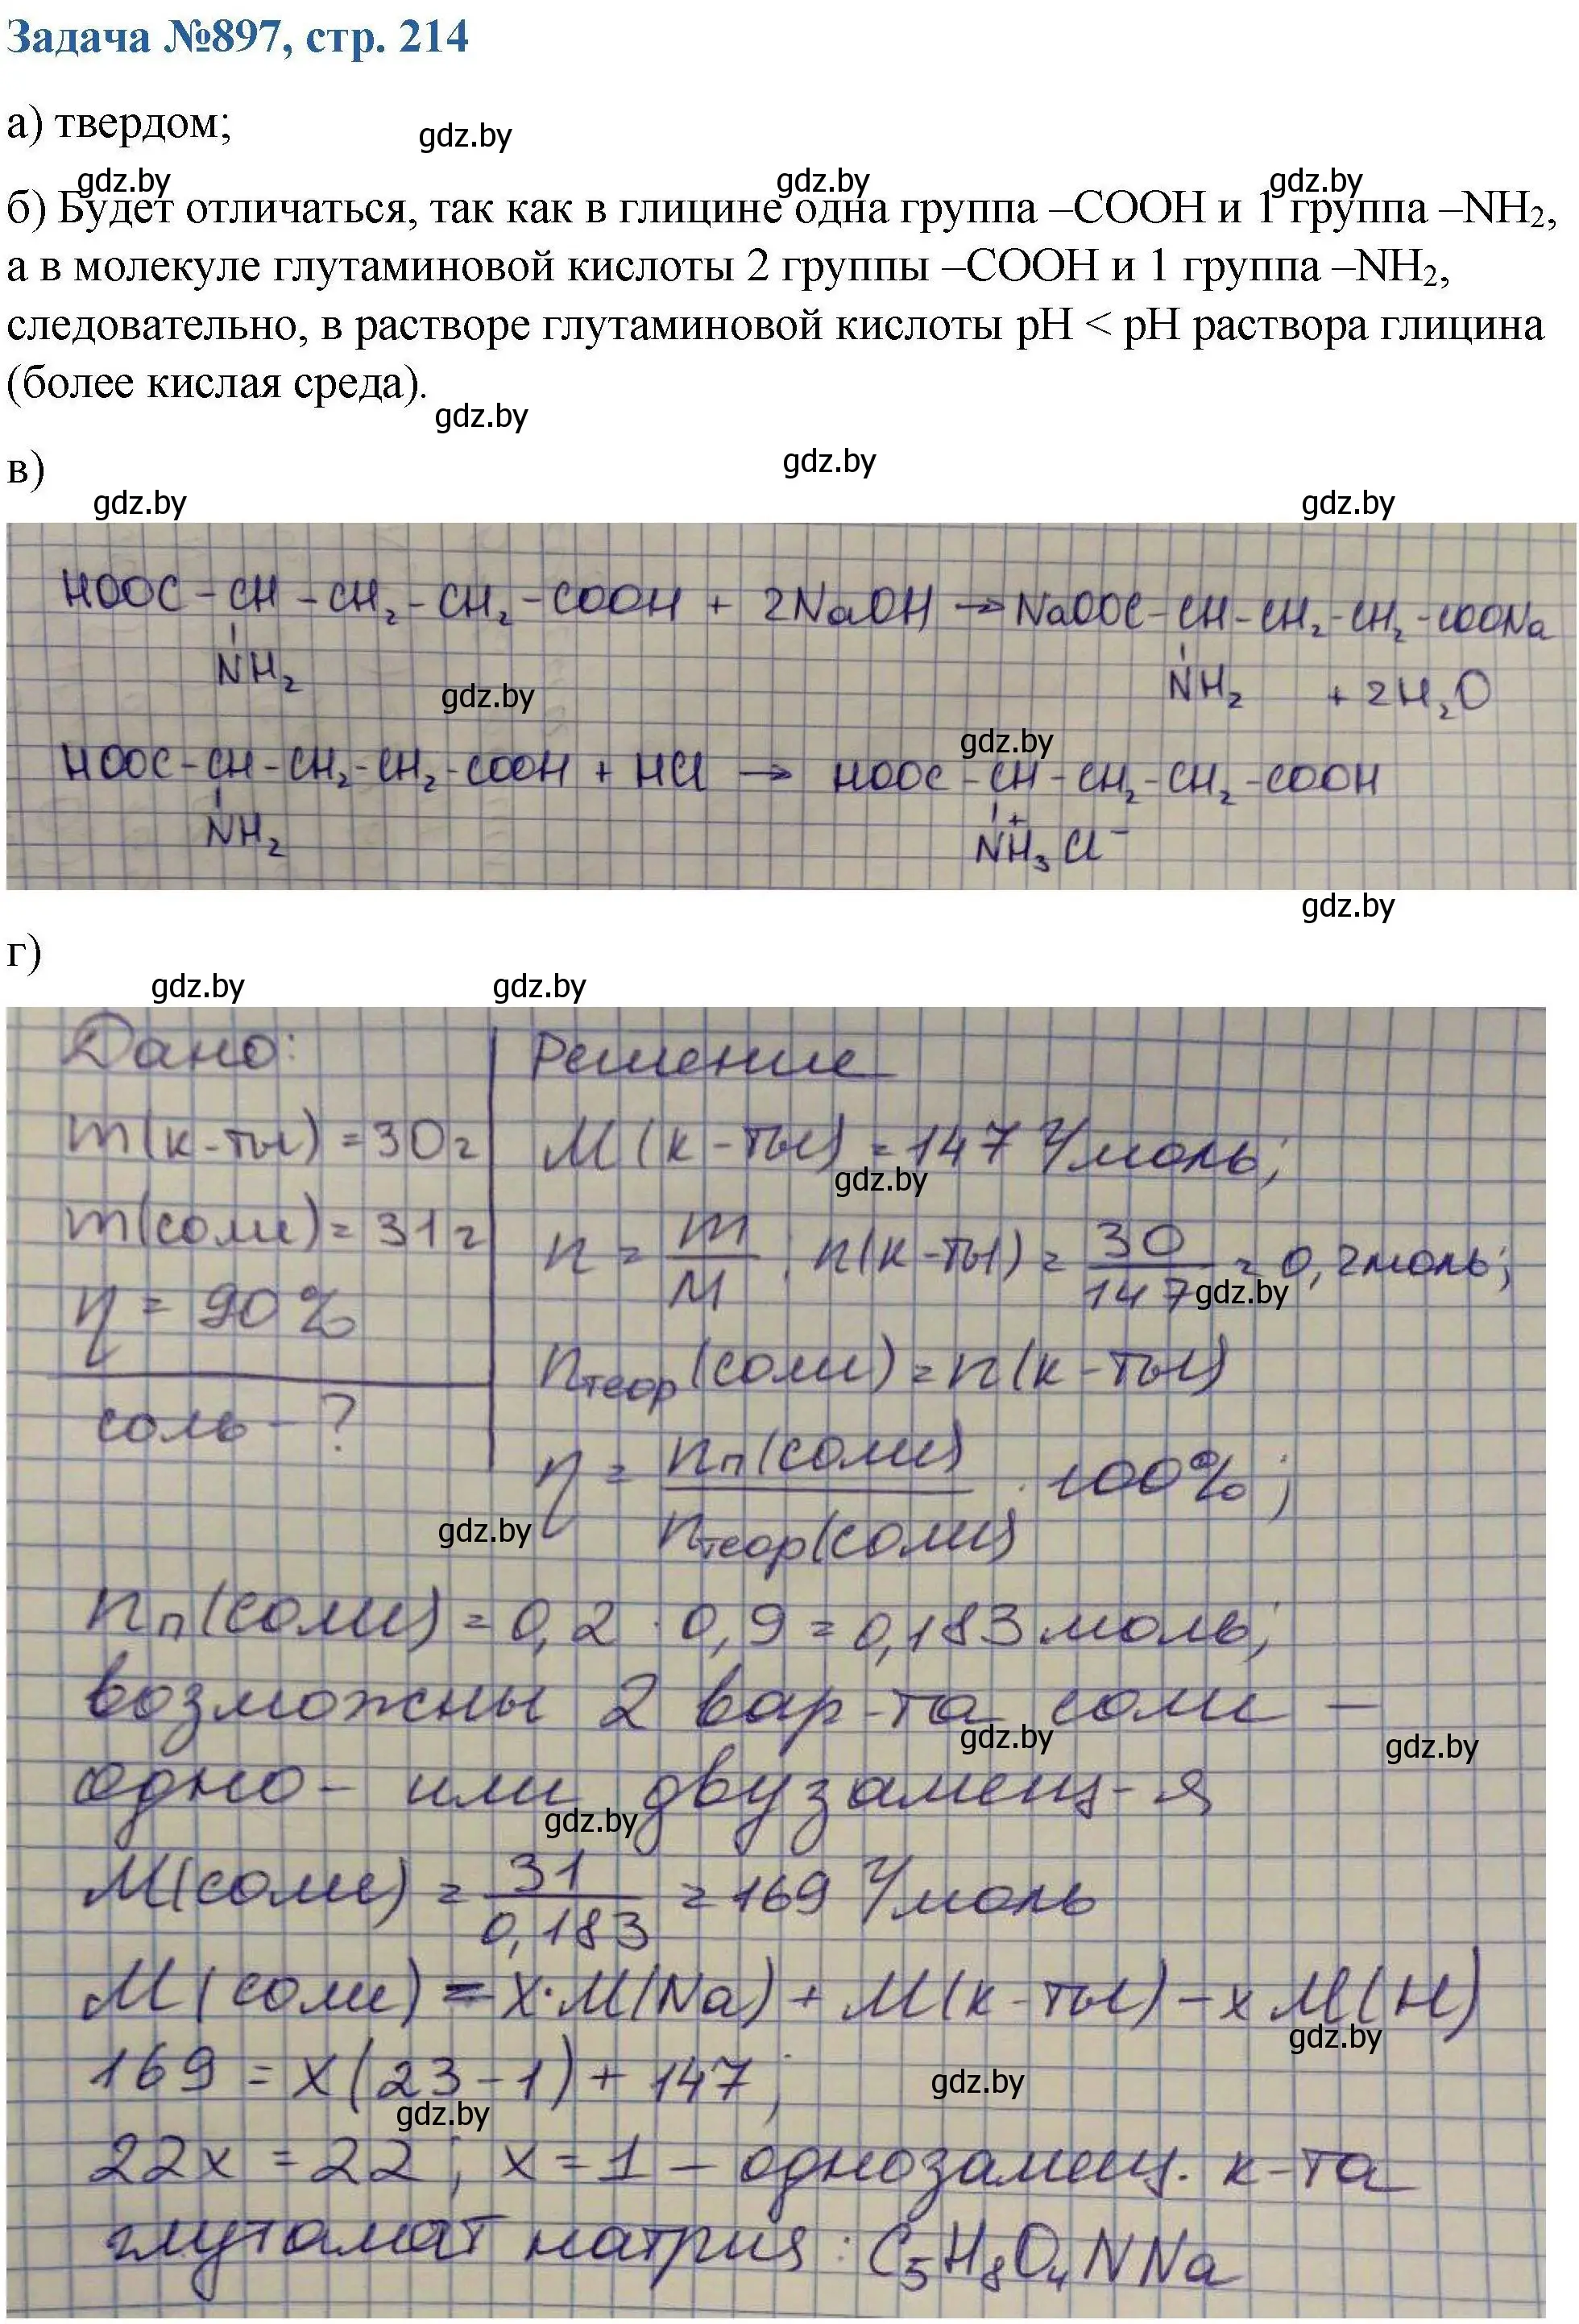 Задача №897, стр. 214
а) твердом;
gdz.by
gdz.by gdz.by gdz.by
б) Будет отличаться, так как в глицине одна группа –COOH и 1 группа –NH₂,
а в молекуле глутаминовой кислоты 2 группы –COOH и 1 группа –NH₂,
следовательно, в растворе глутаминовой кислоты pH < pH раствора глицина
(более кислая среда).
gdz.by
в)
gdz.by
gdz.by gdz.by
HOOC-CH-CH₂-CH₂-COOH + 2NaOH → NaOOC-CH-CH₂-CH₂-COONa
NH₂ NH₂ + 2H₂O
gdz.by
gdz.by
HOOC-CH-CH₂-CH₂-COOH + HCl → HOOC-CH-CH₂-CH₂-COOH
NH₂ NH₃⁺Cl⁻
gdz.by
г)
gdz.by gdz.by
Дано: Решение
m(к-ты) = 30г M(к-ты) = 147 г/моль;
gdz.by
m(соли) = 31г n = m/M; n(к-ты) = 30/147 = 0,2моль;
gdz.by
η = 90%
nтеор(соли) = n(к-ты)
соль - ?
η = nп(соли)/nтеор(соли) · 100%;
gdz.by
nп(соли) = 0,2 · 0,9 = 0,183 моль;
возможны 2 вар-та соли –
gdz.by gdz.by
одно- или двузамещ-я
gdz.by
M(соли) = 31/0,183 = 169 г/моль
M(соли) = x·M(Na) + M(к-ты) – x M(H)
gdz.by
169 = x(23-1) + 147;
gdz.by
gdz.by
22x = 22; x = 1 – однозамещ. к-та
глутамат натрия: C₅H₈O₄NNa